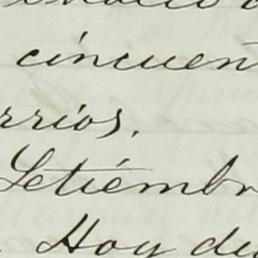 cincuen
rrios.
Setiembr
Hoy de